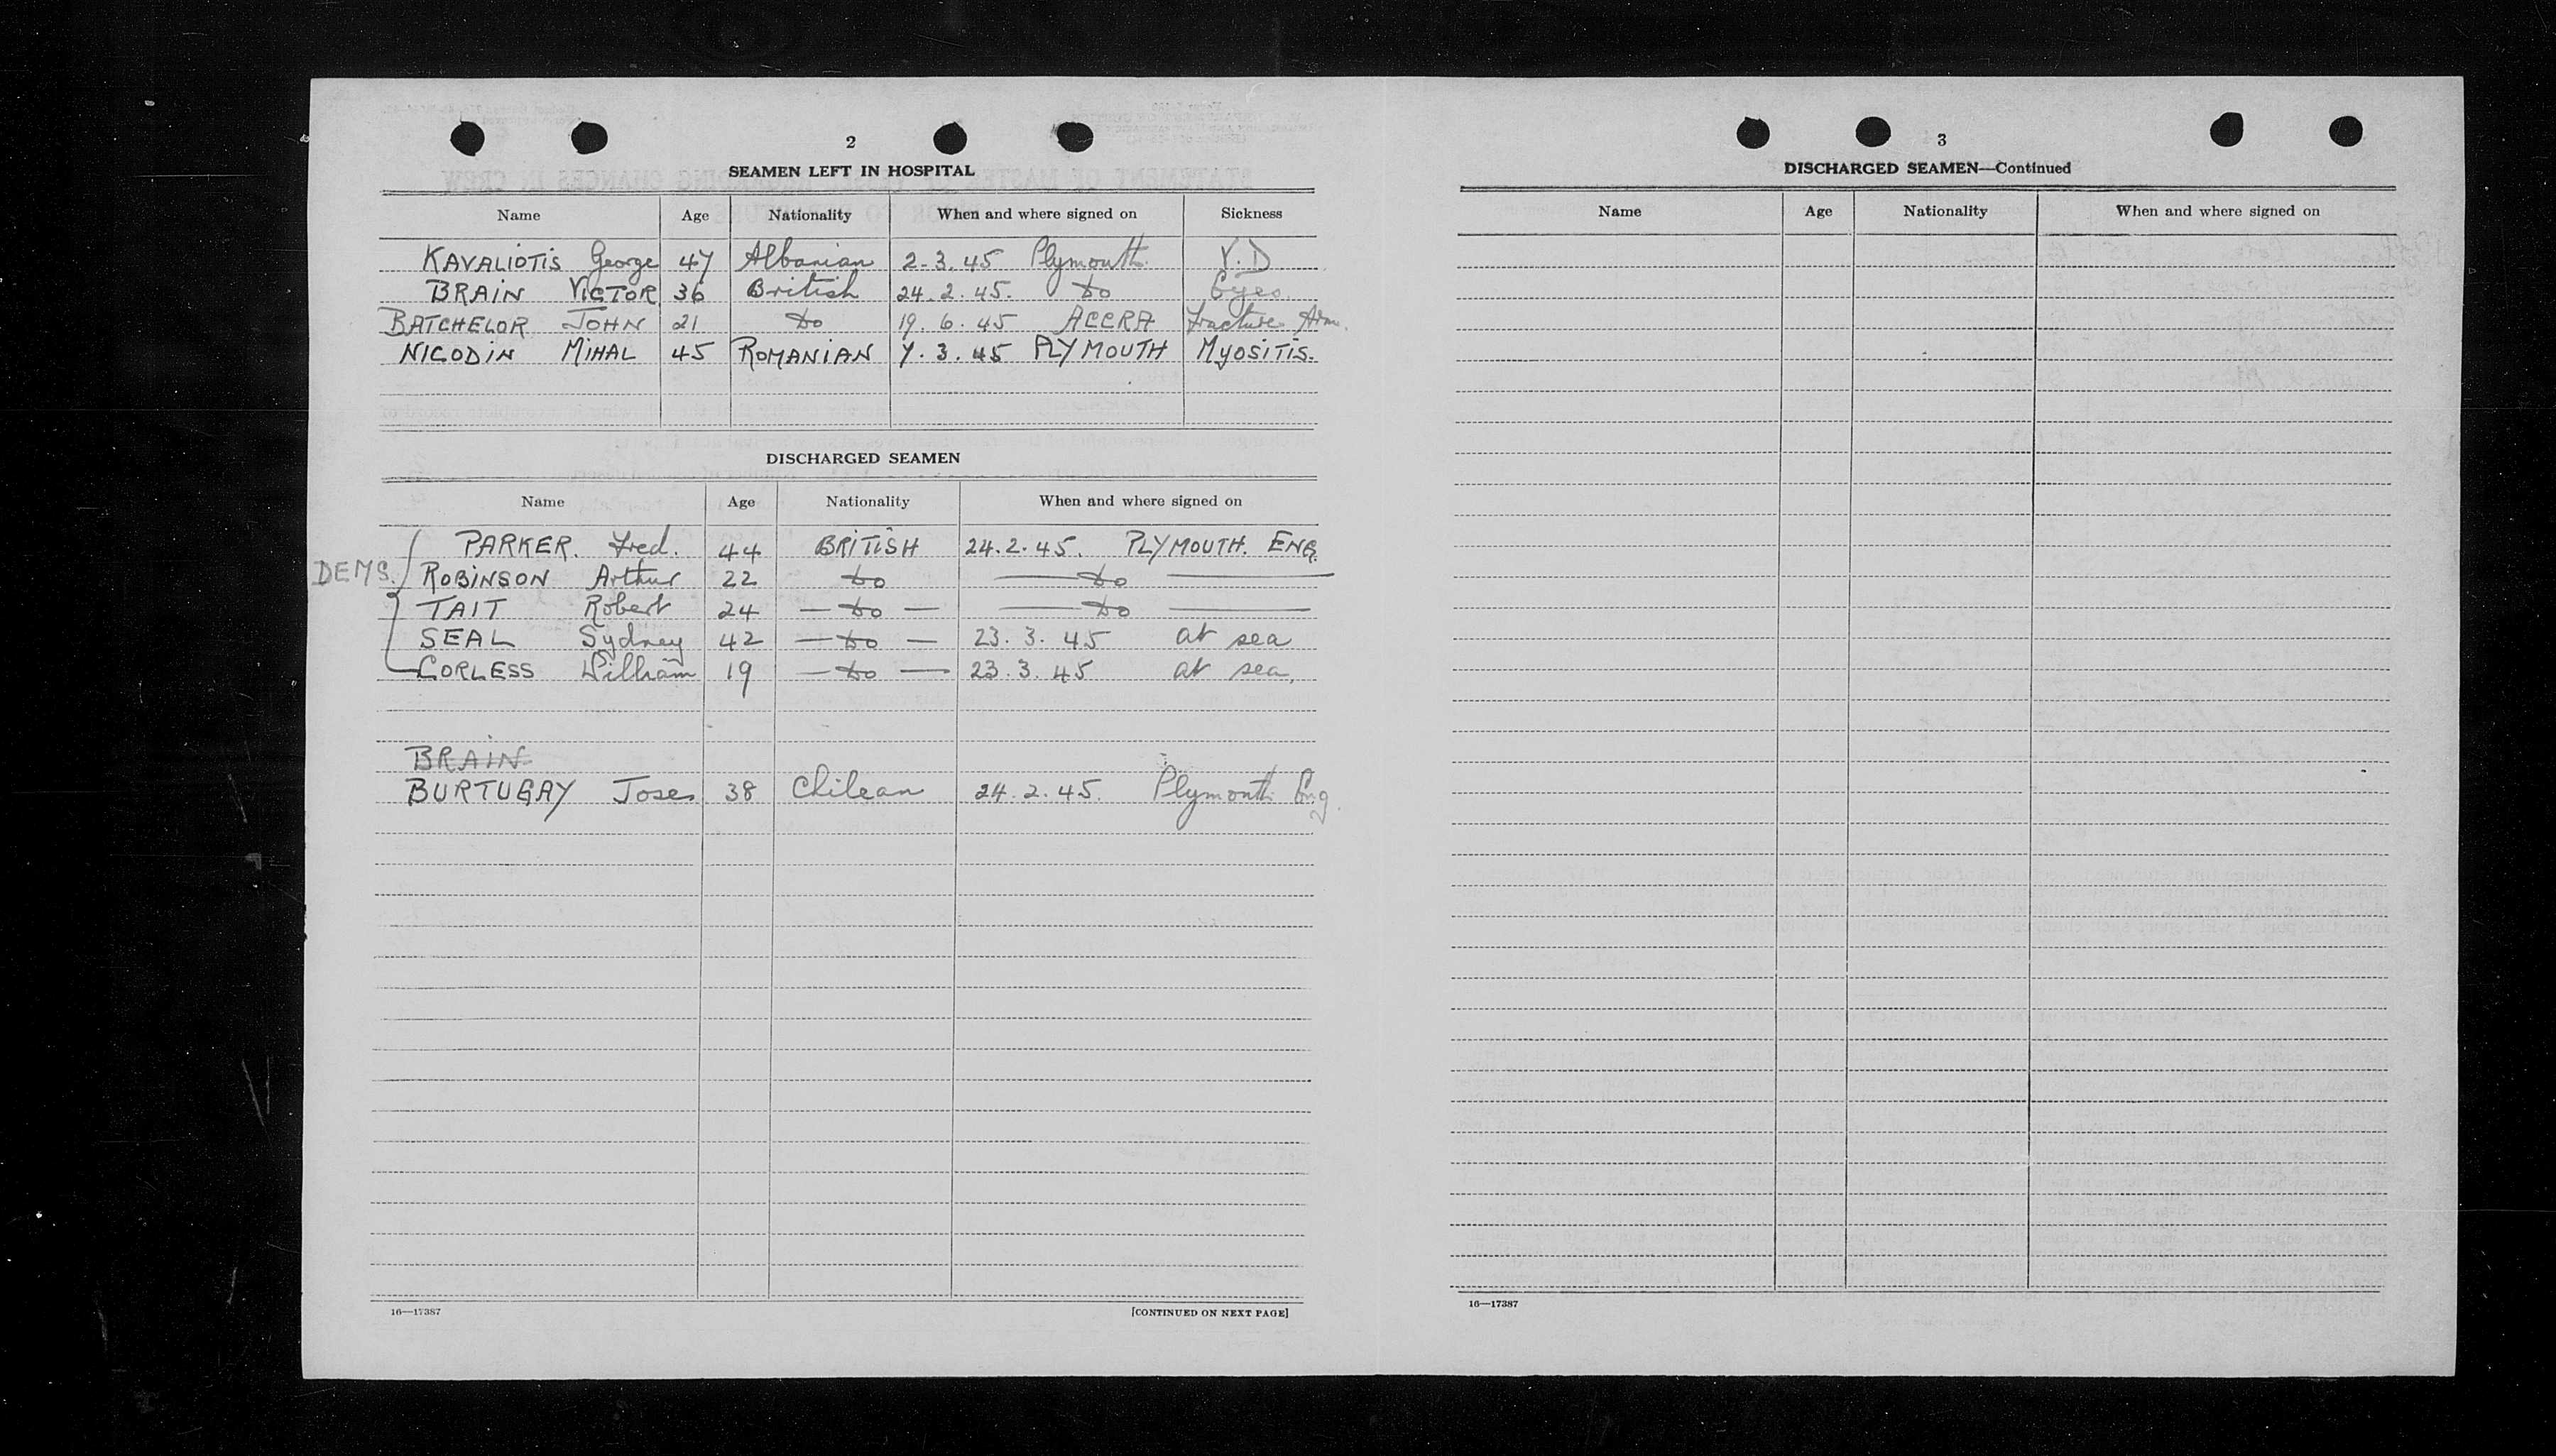 2
SEAMEN LEFT IN HOSPITAL
Name Age Nationality When and where signed on Sickness
KAVALIOTIS George 47 Albanian 2-3.45 Plymouth V.D
BRAIN VICTOR 36 British 24.2.45. Do Eyes
BATCHELOR JOHN 21 Do 19.6.45 ACCRA Fracture Arm.
NICODIN MIHAL 45 ROMANIAN 7.3.45 PLYMOUTH MYOSITIS.
DISCHARGED SEAMEN
Name Age Nationality When and where signed on
PARKER. Fred. 44 BRITISH 24.2.45. PLYMOUTH. ENG.
DEMS. ROBINSON Arthur 22 Do Do
TAIT Robert 24 — Do — Do
SEAL Sydney 42 — Do — 23.3.45 at sea
CORLESS William 19 — Do — 23.3.45 at sea,
BRAIN
BURTUGAY Jose 38 Chilean 24.2.45. Plymouth Eng.
16—17387
[CONTINUED ON NEXT PAGE]
3
DISCHARGED SEAMEN—Continued
Name Age Nationality When and where signed on
16—17387